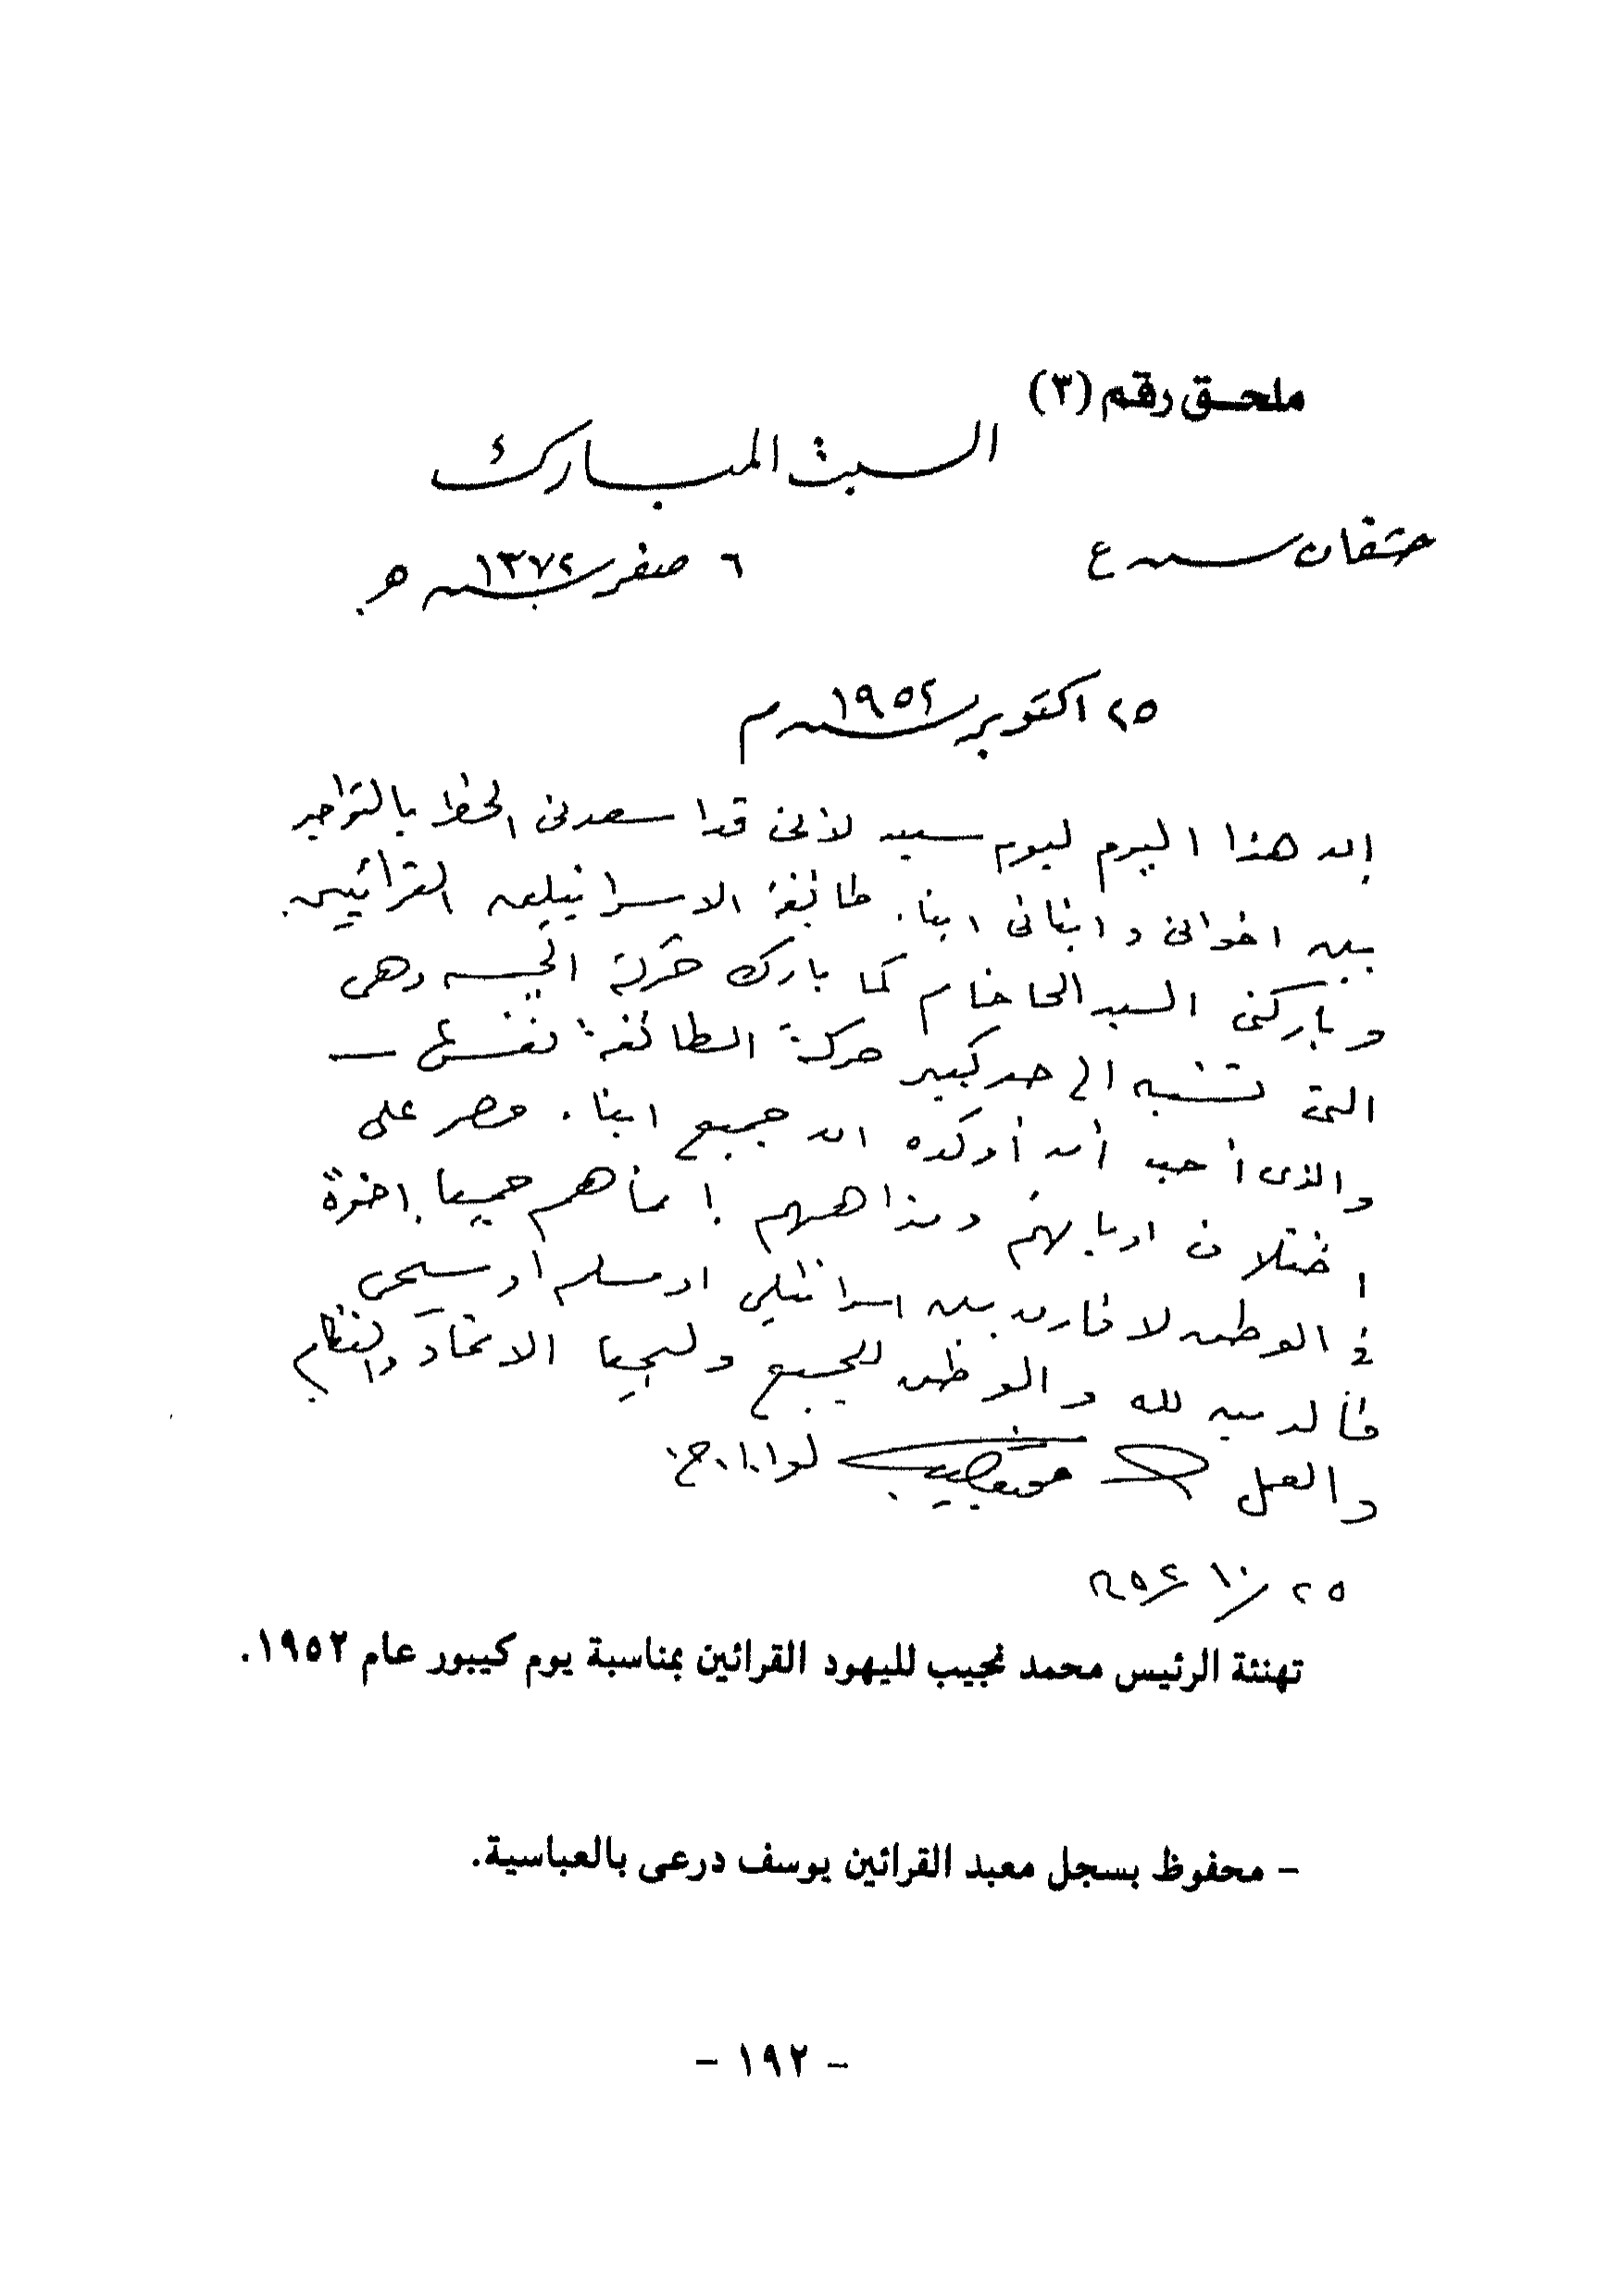 ملحق رقم (٣)
السبت المبارك
حشفان سنه ع
٦ صفر سنه ١٣٧٢ هـ.
٢٥ اكتوبر سنه ١٩٥٢ م
إن هذا اليوم ليوم سعيد لأنى قد اسعدنى الحظ بالتواجد
بين اخوانى وابنائى ابناء طائفة الاسرائيلين القرائيين.
وباركنى السيد الحاخام كما بارك حركة الجيش وهى
التى تشبه الى حد كبير حركة الطائفة نفسها —
والذى أحب أن أوكده ان جميع ابناء مصر على
اختلاف اديانهم ومذاهبهم إنما هم جميعا إخوة
فى الوطن لا فارق بين اسرائيلى او مسلم أو مسيحى
فالدين لله والوطن للجميع وليحيا الاتحاد والنظام
والعمل محمد نجيب لواء ا.ح.
٢٥/١٠/٩٥٢
تهنئة الرئيس محمد نجيب لليهود القرائين بمناسبة يوم كيبور عام ١٩٥٢.
– محفوظ بسجل معبد القرائين يوسف درعى بالعباسية.
– ١٩٢ –